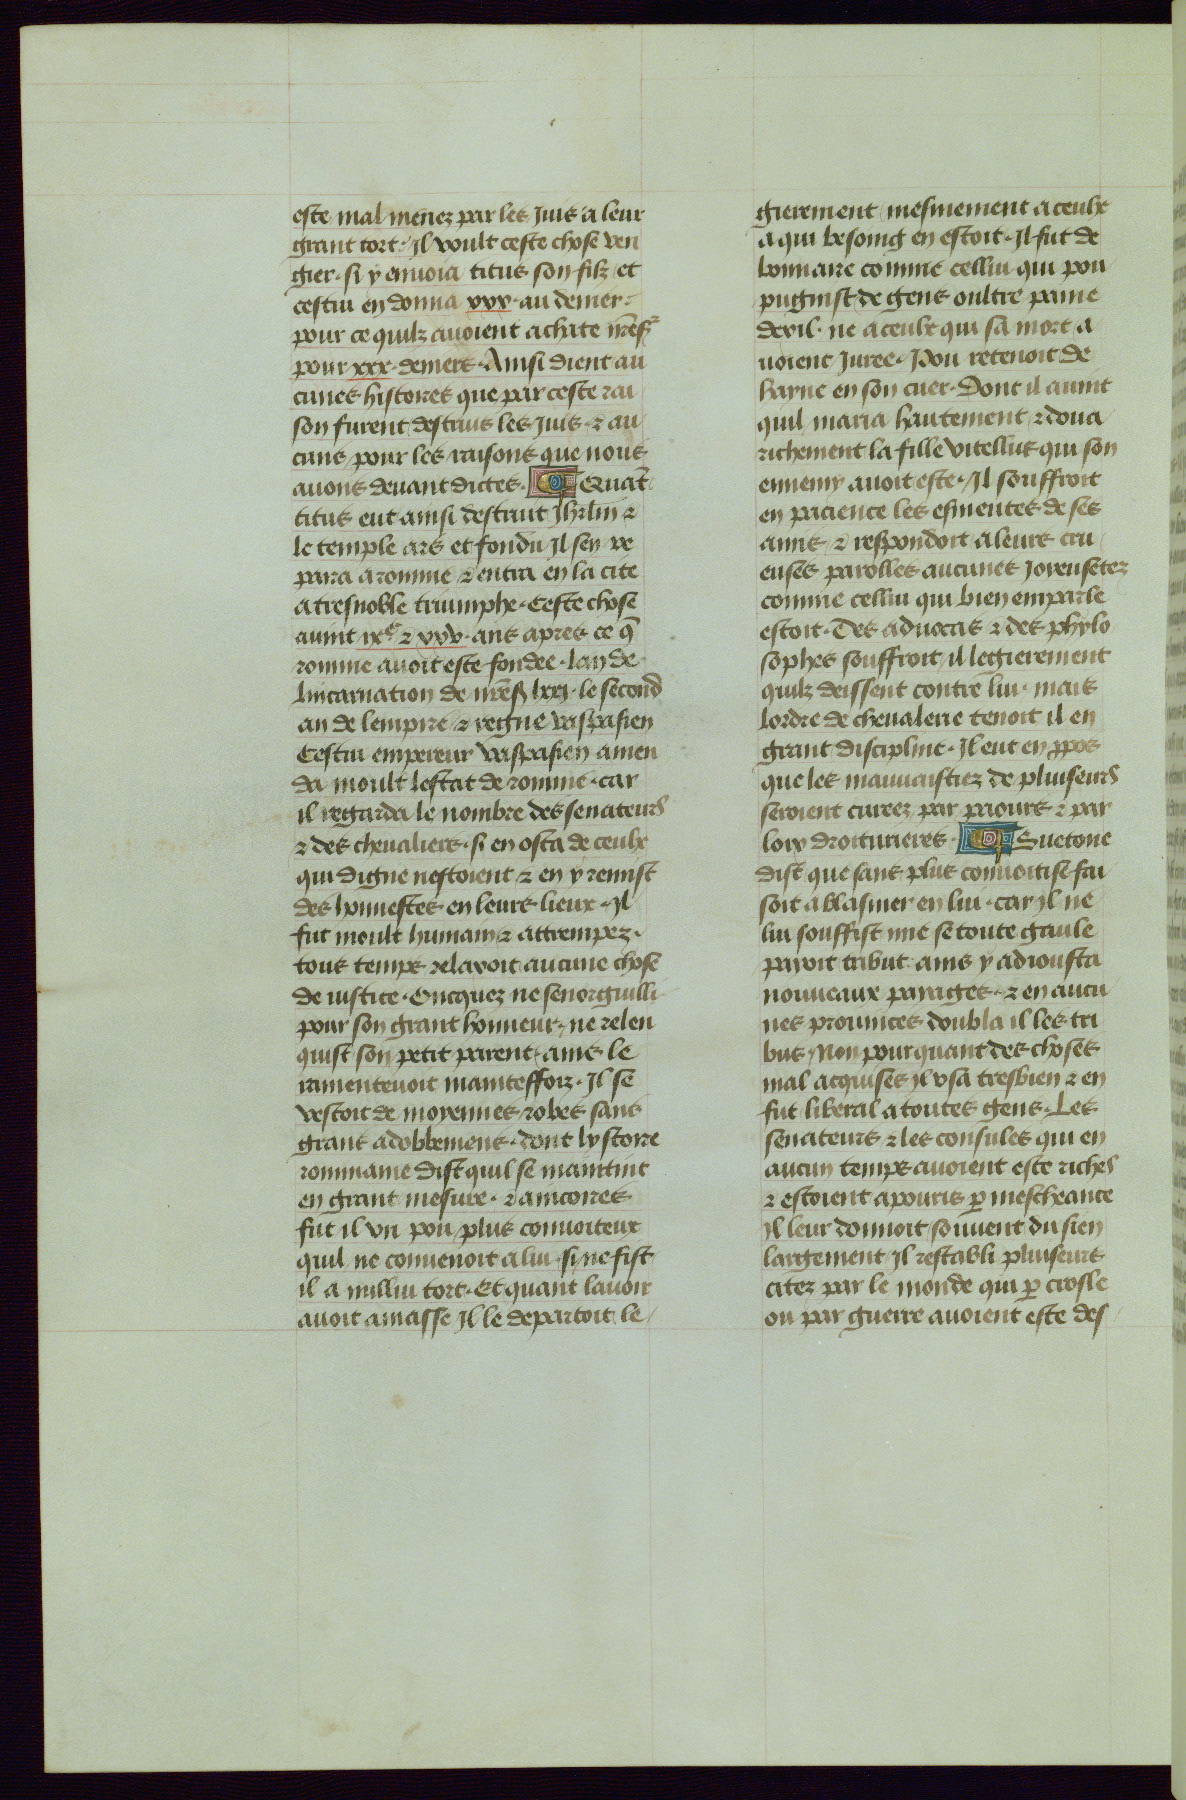 este mal menez par les Juis a leur
grant tort. Il voult ceste chose ven
gier. si y envoia titus son filz et
cestui en donna xxx. au denier.
pour ce quilz avoient achate nrēs̄r
pour xxx. deniers. Ainsi dient au
cunes histoires que par ceste rai
son furent destruis les Juis. ⁊ au
cuns pour les raisons que nous
avons devant dictes. Quāt
titus eut ainsi destruit Jhrlm̄ ⁊
le temple ars et fondu Il sen re
paira a romme ⁊ entra en la cite
a tresnoble triumphe. Ceste chose
avint ixᶜ ⁊ xxx. ans apres ce q̄
romme avoit este fondee. lan de
lincarnation de nrēs̄ lxxi. le second
an de lempire ⁊ regne vaspasien
Cestui empereur vaspasien amen
da moult lestat de romme. car
il regarda le nombre des senateurs
⁊ des chevaliers. si en osta de ceulx
qui digne nestoient ⁊ en y remist
des honnestes en leurs lieux. Il
fut moult humain ⁊ attrempez.
tous temps relaxoit aucune chose
de iustice. Oncquez ne senorguilli
pour son grant honneur. ne relen
quist son petit parent. ains le
ramentevoit mainteffoiz. Il se
vestoit de moyennes robes sans
grans adobbemens. dont lystoire
rommaine dist quil se maintint
en grant mesure. ⁊ aincores
fut il un pou plus convoiteux
quil ne convenoit a lui. si ne fist
il a nullui tort. Et quant lavoir
avoit amasse Il le departoit le
gierement mesmement a ceulx
a qui besoing en estoit. Il fut de
bonnaire comme cellui qui pou
pugnist de gens oultre paine
dexil. ne a ceulx qui sa mort a
voient Juree. Pou retenoit de
hayne en son cuer. Dont il avint
quil maria hautement ⁊ doua
richement la fille vitellus qui son
ennemy avoit este. Il souffroit
en pacience les esmeutes de ses
amis ⁊ respondoit a leurs cru
euses parolles aucunes Joyeusetez
comme cellui qui bien emparle
estoit. Des advocas ⁊ des phylo
sophes souffroit il legierement
quilz deissent contre lui. mais
lordre de chevalerie tenoit il en
grant discipline. Il eut en ꝓpos
que les mauvaistiez de pluiseurs
seroient curez par paours ⁊ par
loix droiturieres. Suetone
dist que sans plus convoitise fai
soit a blasmer en lui. car Il ne
lui souffist mie se toute gaule
payoit tribut ains y adiousta
nouveaux payages. ⁊ en aucu
nes provinces doubla il les tri
bus. Non pourquant des choses
mal acquises Il usa tresbien ⁊ en
fut liberal a toutes gens. Les
senateurs ⁊ les consules qui en
aucun temps avoient este riches
⁊ estoient apouris ꝑ mescheance
Il leur donnoit souvent du sien
largement. Il restabli pluiseurs
citez par le monde qui ꝑ crosle
ou par guerre avoient este des